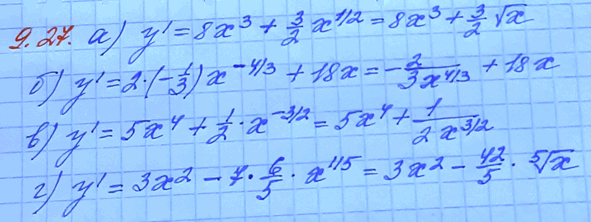 9.27. а) y' = 8x³ + 3/2 x^(1/2) = 8x³ + 3/2 √x
б) y' = 2·(-1/3) x^(-4/3) + 18x = -2/(3x^(4/3)) + 18x
в) y' = 5x⁴ + 1/2 · x^(-3/2) = 5x⁴ + 1/(2x^(3/2))
г) y' = 3x² - 7 · 6/5 · x^(1/5) = 3x² - 42/5 · ⁵√x